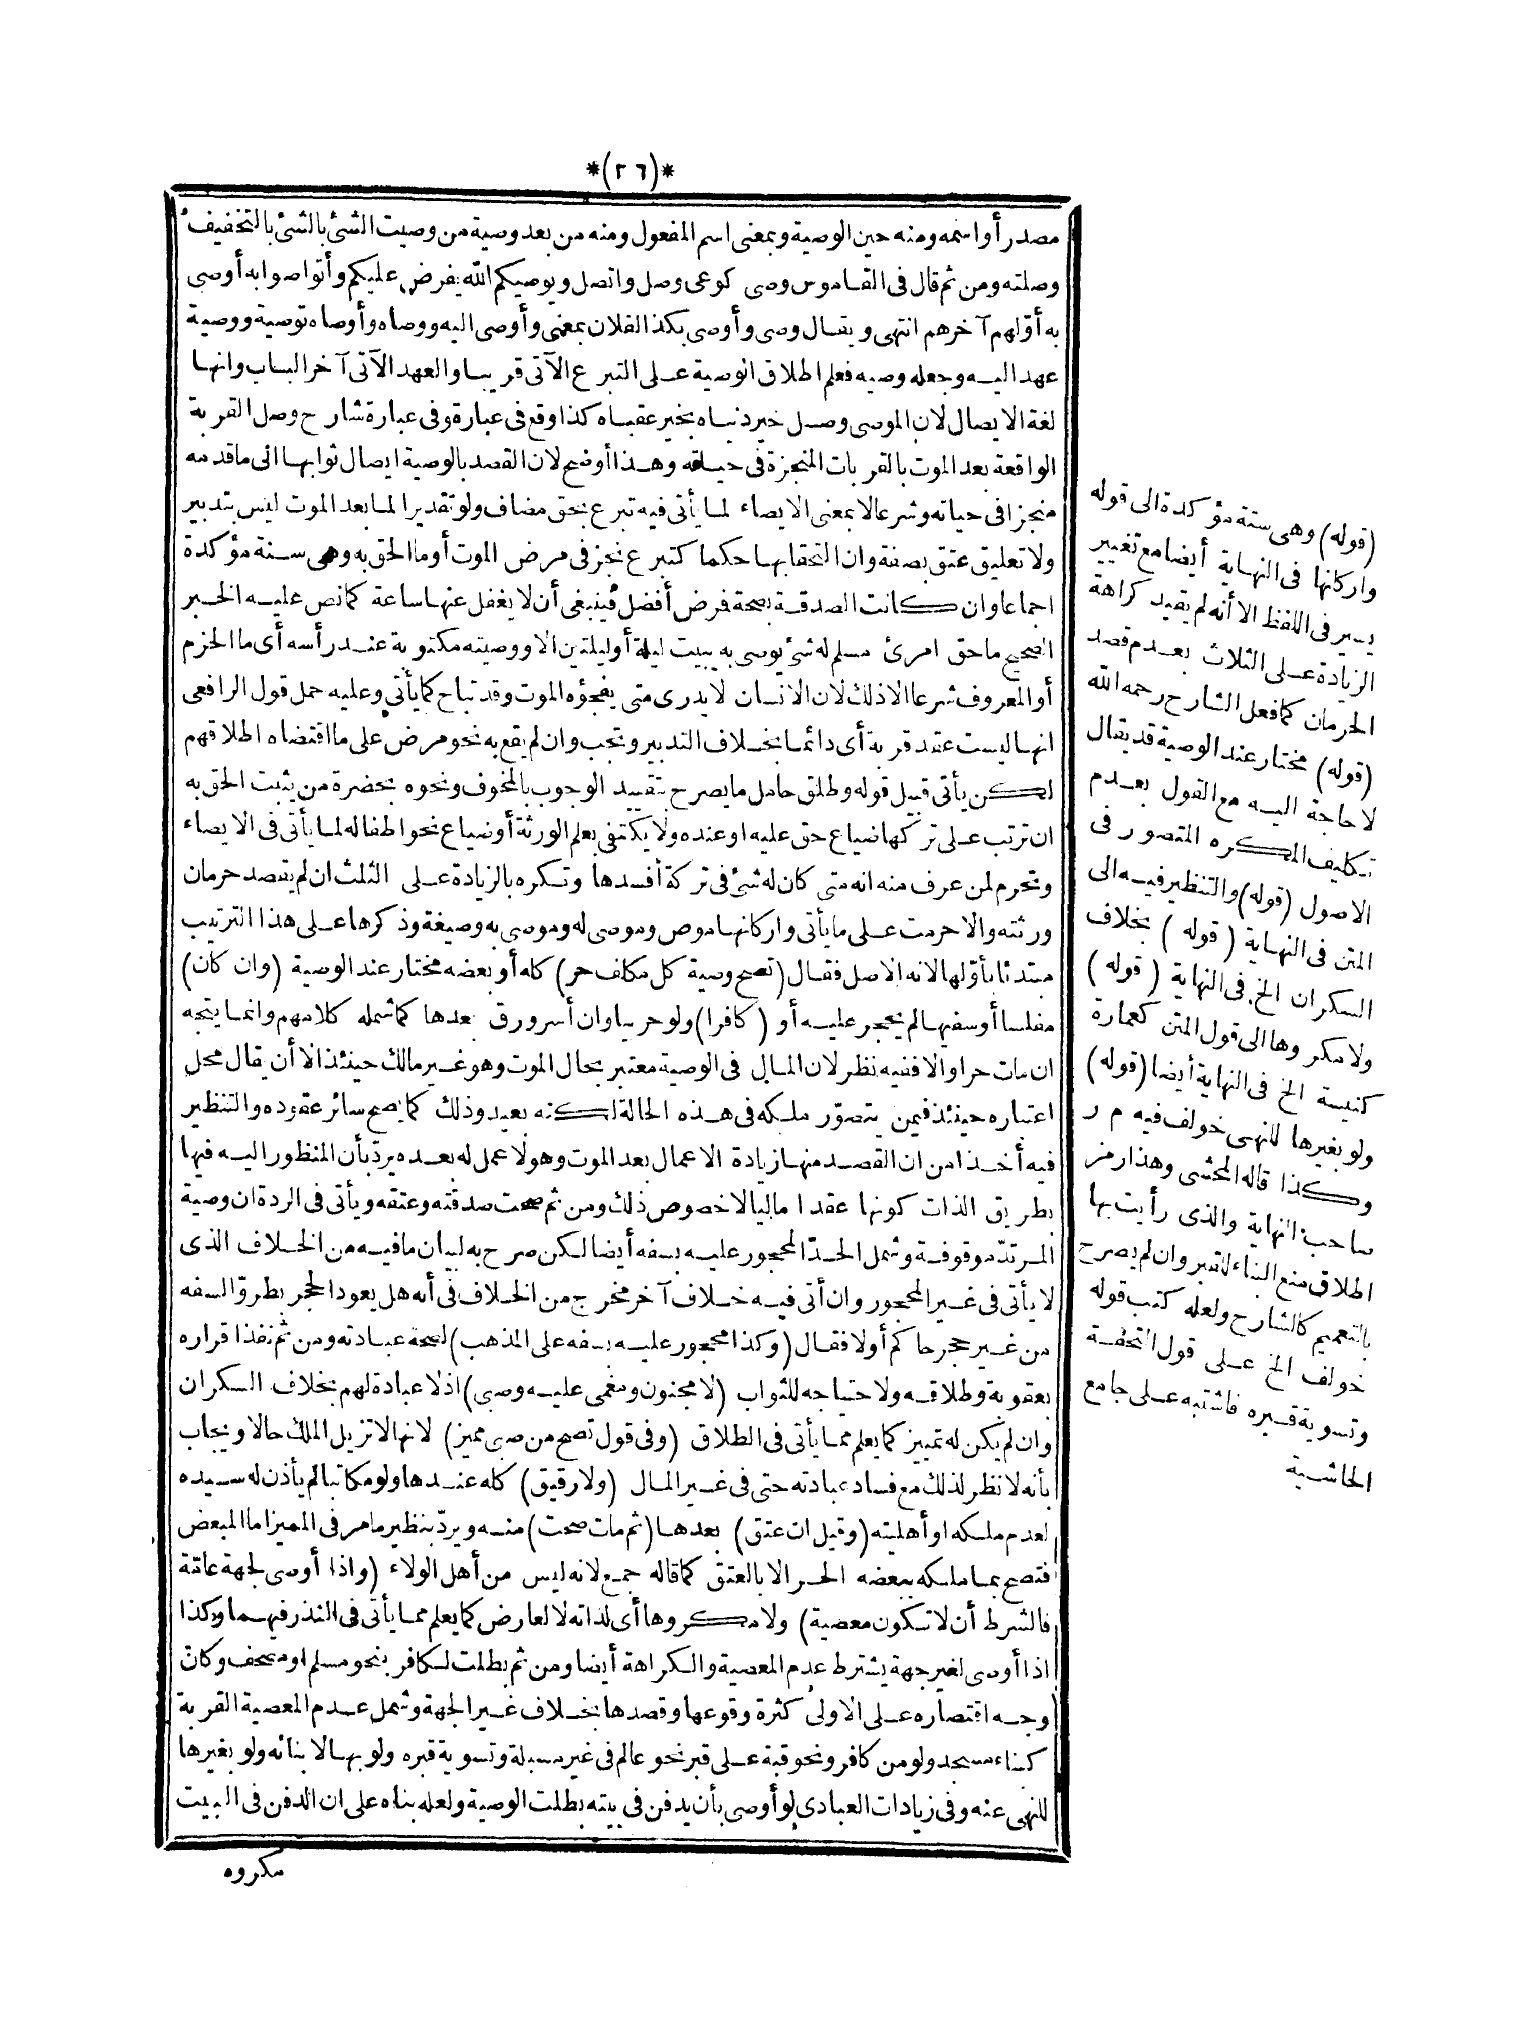 *(٢٦)*
مصدر أو اسمه ومنه حين الوصية وبمعنى اسم المفعول ومنه من بعد وصية من وصيت الشئ بالشئ بالتخفيف
وصلته ومن ثم قال فى القاموس وصى كوعى وصل واتصل ويوصيكم الله يفرض عليكم وأتواصوا به أوصى
به أولهم آخرهم انتهى ويقال وصى وأوصى بكذا الفلان بمعنى وأوصى اليه ووصاه وأوصاه توصية ووصية
عهد اليه وجعله وصيه فعلم اطلاق الوصية على التبرع الآتى قريبا والعهد الآتى آخر الباب وانها
لغة الايصال لان الموصى وصل خير دنياه بخير عقباه كذا وقع فى عبارة وفى عبارة شارح وصل القربة
الواقعة بعد الموت بالقربات المنجزة فى حياته وهذا أوضح لان القصد بالوصية ايصال ثوابها الى ما قدمه
منجزا فى حياته وشرعا لا بمعنى الايصاء لما يأتى فيه تبرع بحق مضاف ولو تقديرا لما بعد الموت ليس بتدبير
ولا تعليق عتق بصفة وان التحقا بها حكما كتبرع نجز فى مرض الموت أو ما الحق به وهى سنة مؤكدة
اجماعا وان كانت الصدقة بصحة فرض أفضل فينبغى أن لا يغفل عنها ساعة كما نص عليه الخبر
الصحيح ما حق امرئ مسلم له شئ يوصى به يبيت ليلة أو ليلتين الا ووصيته مكتوبة عند رأسه أى ما الحزم
أو المعروف شرعا الا ذلك لان الانسان لا يدرى متى يفجؤه الموت وقد تباح كما يأتى وعليه حمل قول الرافعى
انها ليست عقد قربة أى دائما بخلاف التدبير وتجب وان لم يقع به نحو مرض على ما اقتضاه اطلاقهم
لكن يأتى قبيل قوله وطلق حامل ما يصرح بتقييد الوجوب بالمخوف ونحوه بحضرة من يثبت الحق به
ان ترتب على تركها ضياع حق عليه او عنده ولا يكتفى بعلم الورثة أو ضياع نحو اطفاله لما يأتى فى الايصاء
وتحرم لمن عرف منه انه متى كان له شئ فى تركة أفسدها وتكره بالزيادة على الثلث ان لم يقصد حرمان
ورثته والا حرمت على ما يأتى واركانها موص وموصى له وموصى به وصيغة وذكرها على هذا الترتيب
مبتدئا بأولها لانه الاصل فقال (تصح وصية كل مكلف حر) كله أو بعضه مختار عند الوصية (وان كان)
مفلسا أو سفيها لم يحجر عليه أو (كافرا) ولو حربيا وان أسر ورق بعدها كما شمله كلامهم وانما يتجه
ان مات حرا والا ففيه نظر لان المال فى الوصية معتبر بحال الموت وهو غير مالك حينئذ الا أن يقال محل
اعتباره حينئذ فيمن يتصور ملكه فى هذه الحالة لكنه بعيد وذلك كما يصح سائر عقوده والتنظير
فيه أخذا من ان القصد منها زيادة الاعمال بعد الموت وهو لا عمل له بعده يرد بأن المنظور اليه فيها
بطريق الذات كونها عقدا ماليا لا خصوص ذلك ومن ثم صحت صدقته وعتقه ويأتى فى الردة ان وصية
المرتد موقوفة وشمل الحد المحجور عليه بسفه أيضا لكن صرح به لبيان ما فيه من الخلاف الذى
لا يأتى فى غير المحجور وان أتى فيه خلاف آخر مخرج من الخلاف فى أنه هل يعود الحجر بطرو السفه
من غير حجر حاكم أولا فقال (وكذا محجور عليه بسفه على المذهب) لصحة عبادته ومن ثم نفذ اقراره
بعقوبة وطلاقه ولاحتياجه للثواب (لا مجنون ومغمى عليه وصبى) اذ لا عبادة لهم بخلاف السكران
وان لم يكن له تمييز كما يعلم مما يأتى فى الطلاق (وفى قول تصح من صبى مميز) لانها لا تزيل الملك حالا ويجاب
بأنه لا نظر لذلك مع فساد عبادته حتى فى غير المال (ولا رقيق) كله عندها ولو مكاتبا لم يأذن له سيده
لعدم ملكه او أهليته (وقيل ان عتق) بعدها (ثم مات صحت) منه ويرد بنظير ما مر فى المميز اما المبعض
فتصح بما ملكه ببعضه الحر الا بالعتق كما قاله جمع لانه ليس من أهل الولاء (واذا أوصى لجهة عامة
فالشرط أن لا تكون معصية) ولا مكروها أى لذاته لا لعارض كما يعلم مما يأتى فى النذر فيهما وكذا
اذا أوصى لغير جهة يشترط عدم المعصية والكراهة أيضا ومن ثم بطلت لكافر بنحو مسلم او مصحف وكان
وجه اقتصاره على الاولى كثرة وقوعها وقصدها بخلاف غير الجهة وشمل عدم المعصية القربة
كبناء مسجد ولو من كافر ونحو قبة على قبر نحو عالم فى غير مسبلة وتسوية قبره ولو بها لا بنائه ولو بغيرها
للنهى عنه وفى زيادات العبادى لو أوصى بأن يدفن فى بيته بطلت الوصية ولعله بناه على ان الدفن فى البيت
مكروه
(قوله) وهى سنة مؤكدة الى قوله
واركانها فى النهاية أيضا مع تغيير
يسير فى اللفظ الا أنه لم يقيد كراهة
الزيادة على الثلاث بعدم قصد
الحرمان كما فعل الشارح رحمه الله
(قوله) مختار عند الوصية قد يقال
لا حاجة اليه مع القول بعدم
تكليف المكره المتصور فى
الاصول (قوله) والتنظير فيه الى
المتن فى النهاية (قوله) بخلاف
السكران الخ فى النهاية (قوله)
ولا مكروها الى قول المتن كعمارة
كنيسة الخ فى النهاية أيضا (قوله)
ولو بغيرها للنهى خولف فيه م ر
وكذا قاله المحشى وهذا رمز
صاحب النهاية والذى رأيت بها
اطلاق منع البناء للقبر وان لم يصرح
بالتعميم كالشارح ولعله كتب قوله
خولف الخ على قول التحفة
وتسوية قبره فاشتبه على جامع
الحاشية